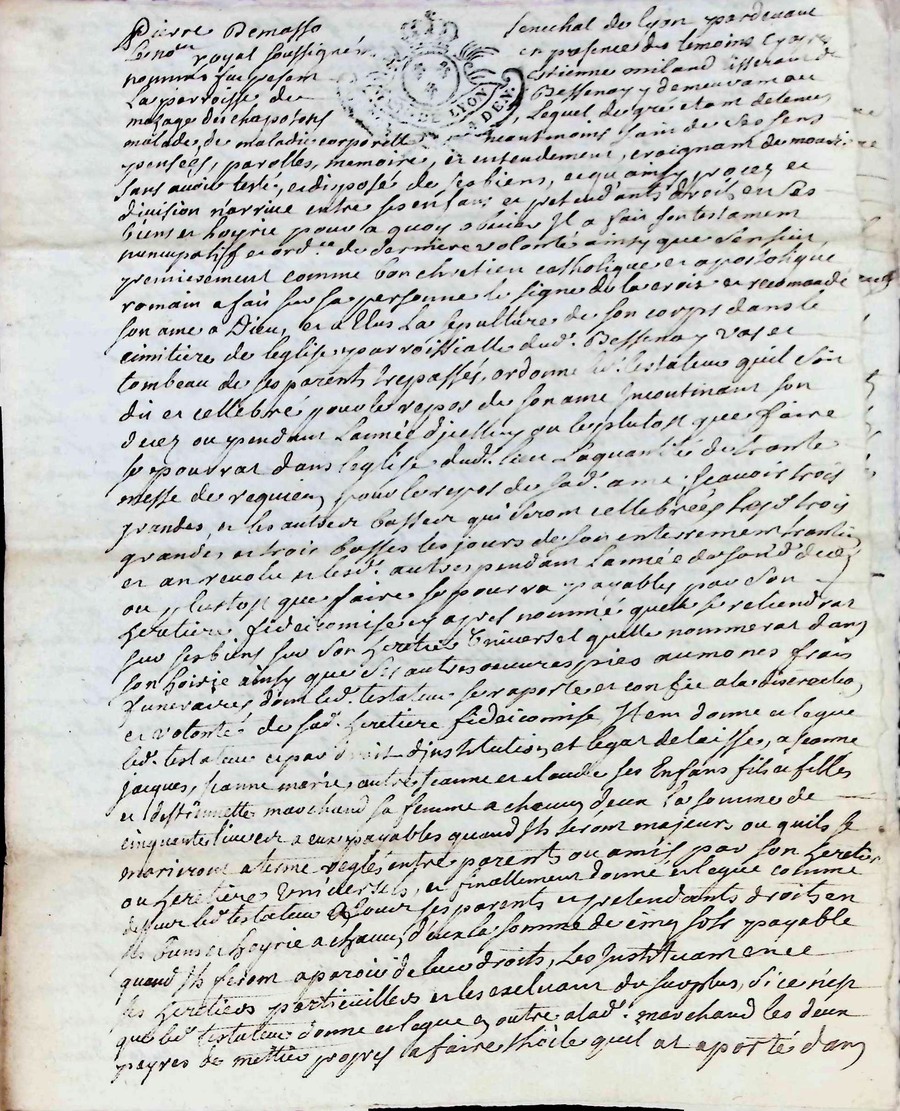 Pierre Demasso Senechal de Lyon pardevant
le nore royal soussigné en presence des temoins cy apres
nommés fut present Etienne miland tisserand de
La parroisse de Bessenay y demeurant au
masage des chaposons Lequel de gré etant detenu
malade de maladie corporelle neantmoins sain de ses sens
pensées, parolles, memoire, et entendement, craignant de mourir
sans avoir testé, et disposé de ses biens, et qu'ainsy procez et
division n'arrive entre ses enfans et pretendants droits en ses
biens et hoyrie pour a quoy obvier Il a fait son testament
nuncupatif et ordce de derniere volonté ainsy que s'ensuit
premierement comme bon chretien catholique et apostolique
romain a fait sur sa personne le signe de la croix et recomandé
son ame a Dieu, et a Elus La sepulture de son corps dans le
cimitiere de l'eglise parroissialle dud. Bessenay vas et
tombeau de ses parents trepassés, ordonne led. testateur quil soit
dit et cellebré pour le repos de son ame Incontinant son
decez ou pendant L'année d'jcelluy ou le plutost que faire
se pourrat dans l'eglise dud. lieu La quantité de trante
messe de requiem pour le repos de sad. ame, scavoir trois
grandes, et les autres basses qui seront cellebrées les d. trois
grandes et trois basses les jours de son enterrement trantin
et an revolu et les d. autres pendant L'année de son d. decez
ou plustost que faire se pourra payables par son
heretiere fideicomise cy apres nommé quelle se retiendrat
sur ses biens sur son heretier Universel quelle nommerat dans
son hoirie ainsy que ses autres oeuvres pies aumones frais
funeraires dont led. testateur se raporte et confie a la discretion
et volonté de sad. heretiere fideicomise Item donne et legue
led. testateur et par droit d'institution et legat delaisse, a jeanne
jacques, jeanne marie, autre jeanne et claude ses Enfans fils et filles
et marchand sa femme a chacun deux La somme de
cinquante livres a eux payables quand Ils seront majeurs ou quils se
marieront a terme reglés entre parents ou amis par son heretier
ou heretiere Universels, et finallement donne et legue comme
dessus led. testateur a tous ses parents et pretendants droits en
ses biens et hoyrie a chacun d'eux la somme de cinq sols payable
quand Ils feront aparoir de leur droits, Les Instituant en ce
ses heretiers particuilliers et les excluant du surplus, Si ce n'est
que led. testateur donne et legue en outre a lad. marchand les deux
payres de mettier propres a faire thoile quil at aporté dans